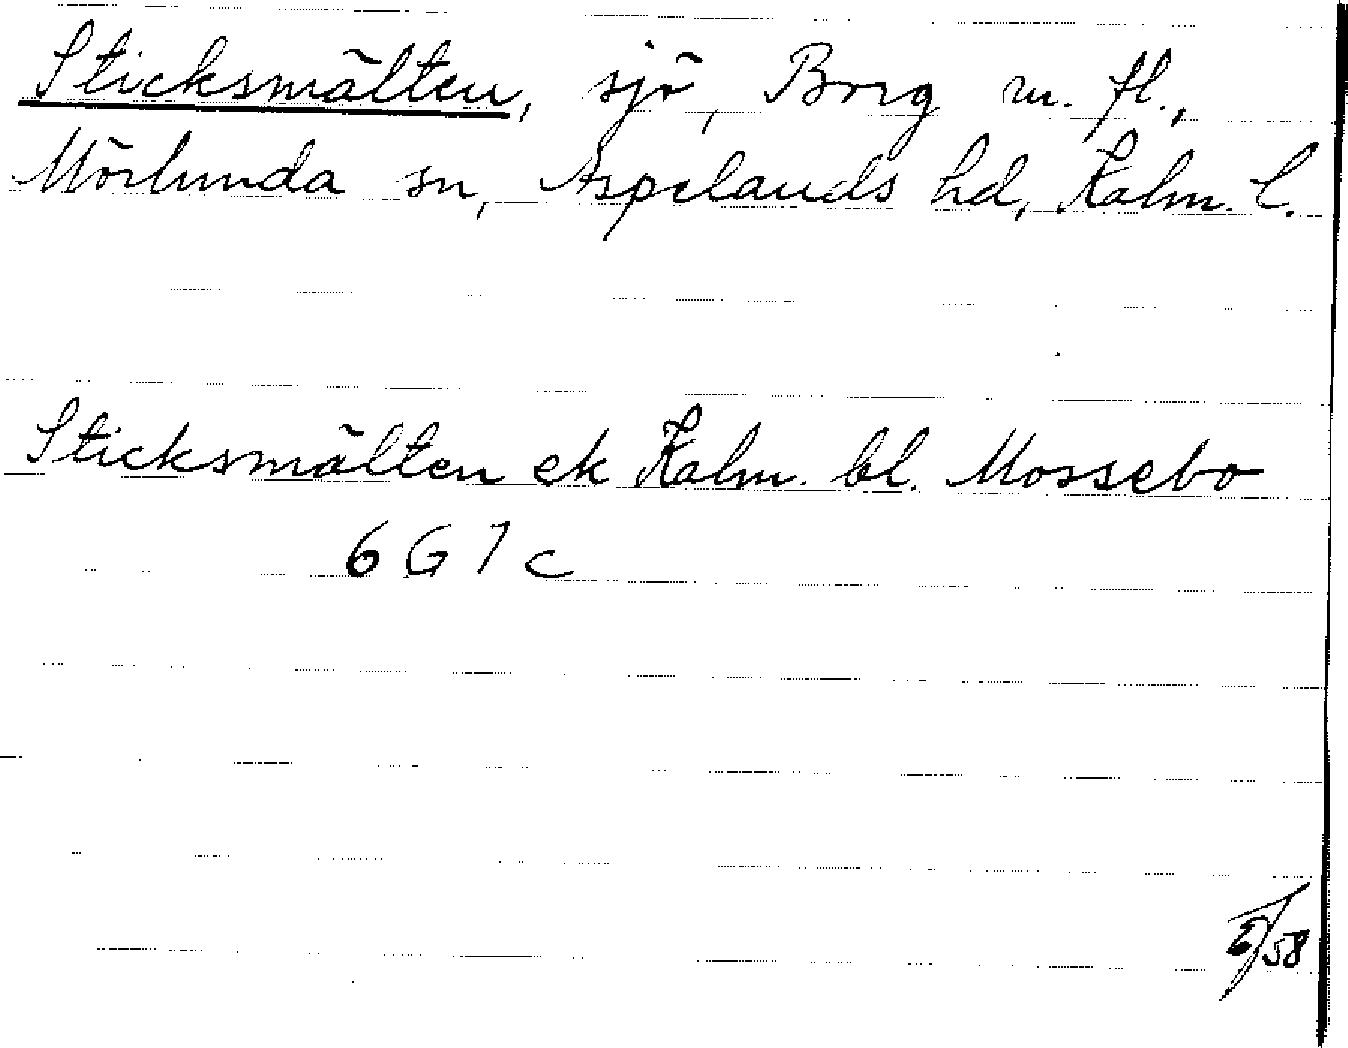 Sticksmålten, sjö, Borg m. fl.,
Mörlunda sn, Aspelands hd, Kalm. l.
Sticksmålten ek Kalm. bl. Mossebo
6 G 7 c
58